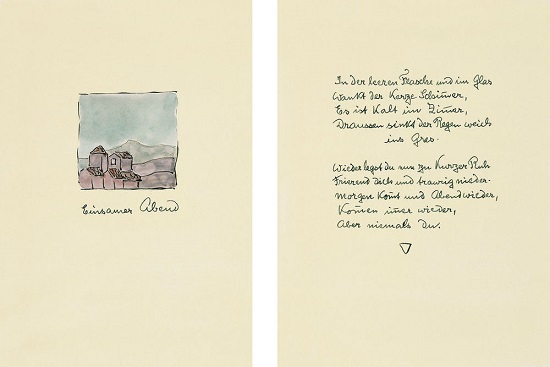 Einsamer Abend
In der leeren Flasche und im Glas
Wankt der Kerze Schim̅er,
Es ist kalt im Zim̅er,
Draussen sinkt der Regen weich
ins Gras.
Wieder legst du nun zu kurzer Ruh
Frierend dich und traurig nieder.
Morgen kom̅t und Abend wieder,
Kom̅en im̅er wieder,
Aber niemals du.